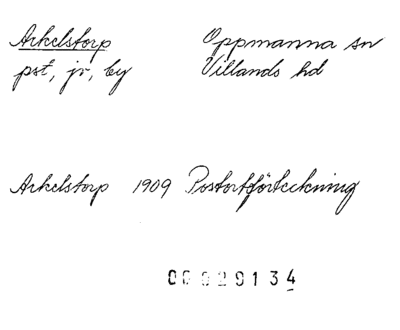 Arkelstorp Oppmanna sn
pst, jr, by Villands hd
Arkelstorp 1909 Postortförteckning